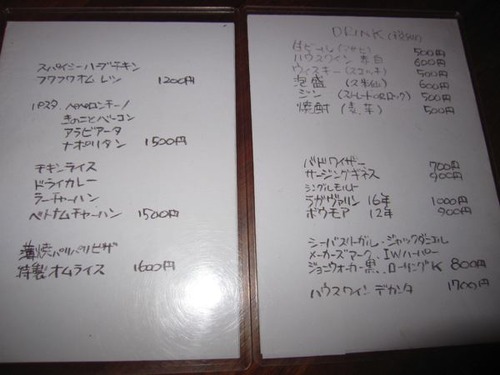 スパイシーハーブチキン
フワフワオムレツ 1200円
パスタ、ペペロンチーノ
きのことベーコン
アラビアータ
ナポリタン 1500円
チキンライス
ドライカレー
ラーチャーハン
ベトナムチャーハン 1500円
薄焼パリパリピザ
特製オムライス 1600円
DRINK
生ビール 500円
ハウスワイン 赤白 600円
ウィスキー(スコッチ) 500円
泡盛 600円
ジン (ストレートORロック) 500円
焼酎 (麦、芋) 500円
バドワイザー 700円
サージングギネス 900円
シングルモルト
ラガヴァリン 16年 1000円
ボウモア 12年 900円
シーバスリーガル・ジャックダニエル
メーカーズマーク・I.Wハーパー
ジョニウォーカー黒、ローリングK 800円
ハウスワイン デカンタ 1700円